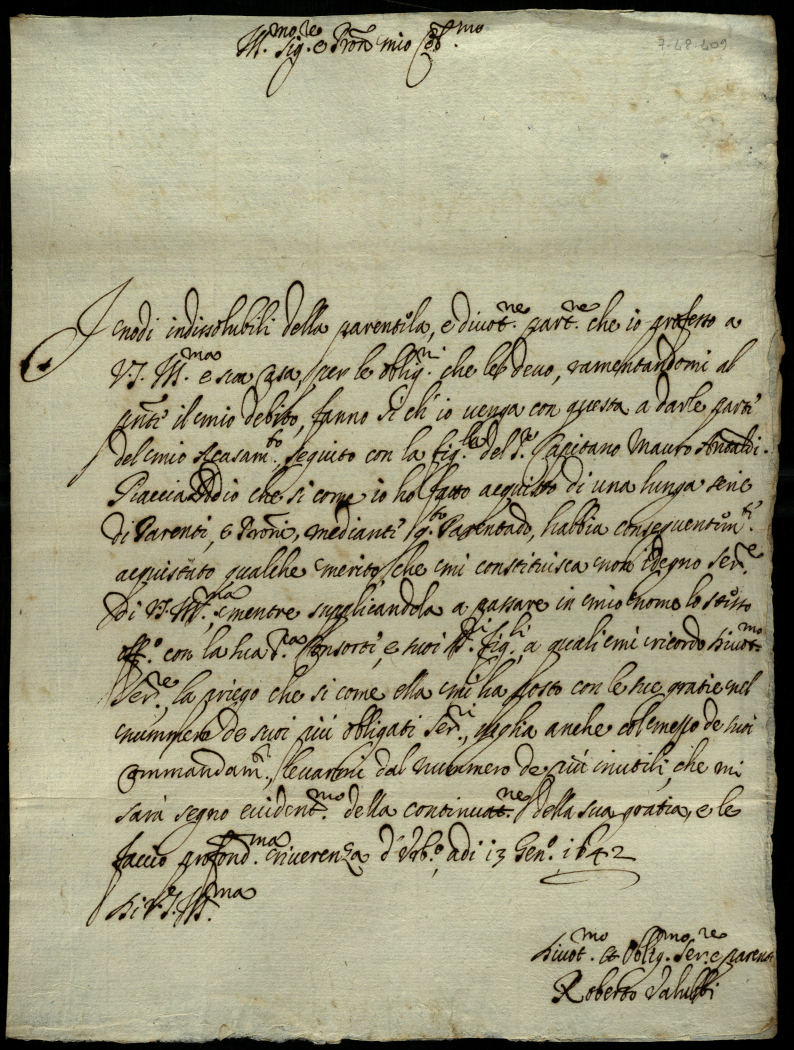 Ill.mo Sig.re e Pron mio Col.mo
7-48-409
I nodi indissolubili della parentela, e divot.ne part.re che io professo a
V.S. Ill.ma e sua Casa, per le oblig.ni che le devo, ramentandomi al
pnte il mio debito, fanno si ch'io venga con questa a darle parte
del mio accasam.to, seguito con la fig.la del S.r Capitano Mauro Antaldi.
Piaccia a Dio che si come io ho fatto acquisto di una lunga serie
di Parenti, e Proni, mediante q.to Parentado, habbia conseguentem.te
acquistato qualche merito che mi constituisca non indegno Ser.re
di V.S. Ill.ma, e mentre supplicandola a passare in mio nome lo stesso
off.o con la sua S.ra Consorte, e suoi SS.ri fig.li, a quali mi ricordo divot.mo
Ser.re, la priego che si come ella mi ha posto con le sue gratie nel
nummero de suoi più obligati Ser.ri, voglia anche col mezzo de suoi
commandam.ti, levarmi dal nummero de più inutili, che mi
sarà segno evident.mo della continuat.ne della sua gratia, e le
faccio profond.ma riverenza d'Urb.o, adi 13 Gen.o, 1642
Di V.S. Ill.ma
Divot.mo et Oblig.mo Ser.re e parente
Roberto